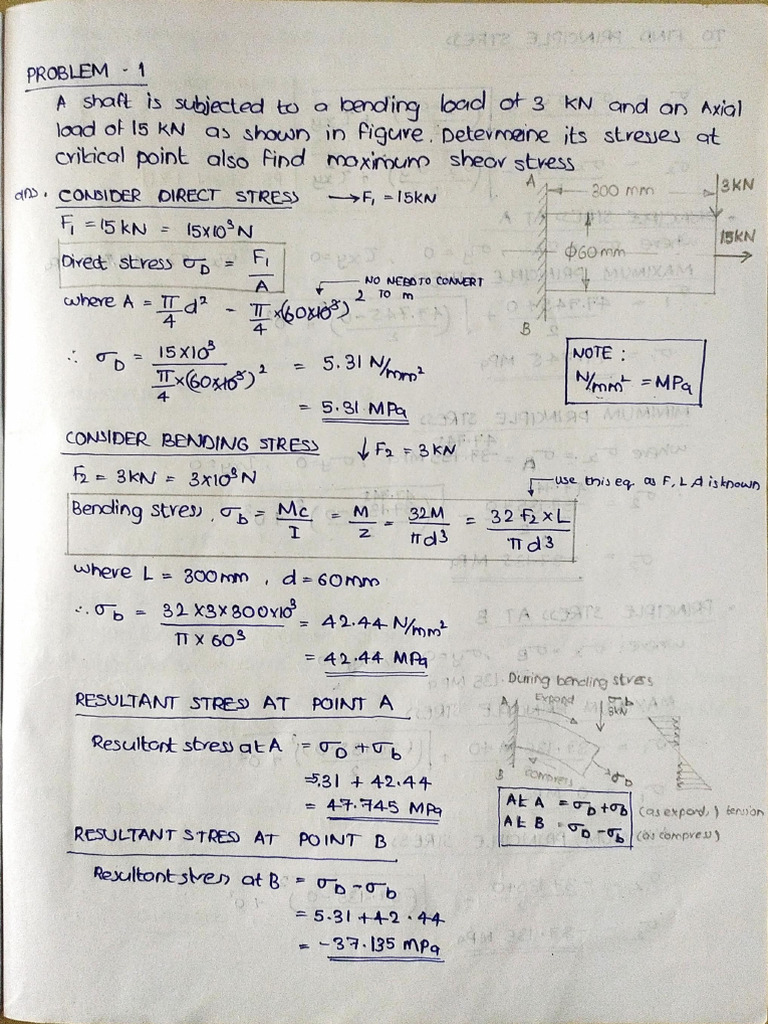 PROBLEM - 1
A shaft is subjected to a bending load of 3 KN and an Axial
load of 15 KN as shown in figure. Determine its stresses at
critical point also find maximum shear stress
A
300 mm
3KN
15KN
ϕ60mm
B
ans. CONSIDER DIRECT STRESS → F₁ = 15KN
F₁ = 15 KN = 15×10³N
Direct stress σ_D = F₁/A
NO NEED TO CONVERT
TO m
where A = π/4 d² - π/4 ×(60×10³)²
∴ σ_D = 15×10³ / π/4 ×(60×10³)² = 5.31 N/mm²
= 5.31 MPa
NOTE :
N/mm² = MPa
CONSIDER BENDING STRESS ↓ F₂ = 3KN
F₂ = 3KN = 3×10³N
use this eq as F, L, d is known
Bending stress, σ_b = Mc/I = M/Z = 32M/πd³ = 32 F₂ × L/πd³
where L = 300mm , d = 60mm
∴ σ_b = 32 ×3×300×10³ / π × 60³ = 42.44 N/mm²
= 42.44 MPa
RESULTANT STRESS AT POINT A
Resultant stress at A = σ_D + σ_b
= 5.31 + 42.44
= 47.745 MPa
During bending stress
A
Expand
σ_b
3KN
B
compress
σ_D
At A = σ_D + σ_b (as expand,) tension
At B = σ_D - σ_b (as compress)
RESULTANT STRESS AT POINT B
Resultant stress at B = σ_D - σ_b
= 5.31 + 42.44
= -37.135 MPa